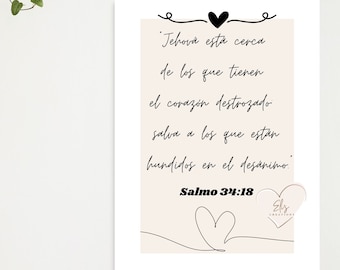 "Jehová está cerca
de los que tienen
el corazón destrozado
salva a los que están
hundidos en el desánimo."
Salmo 34:18